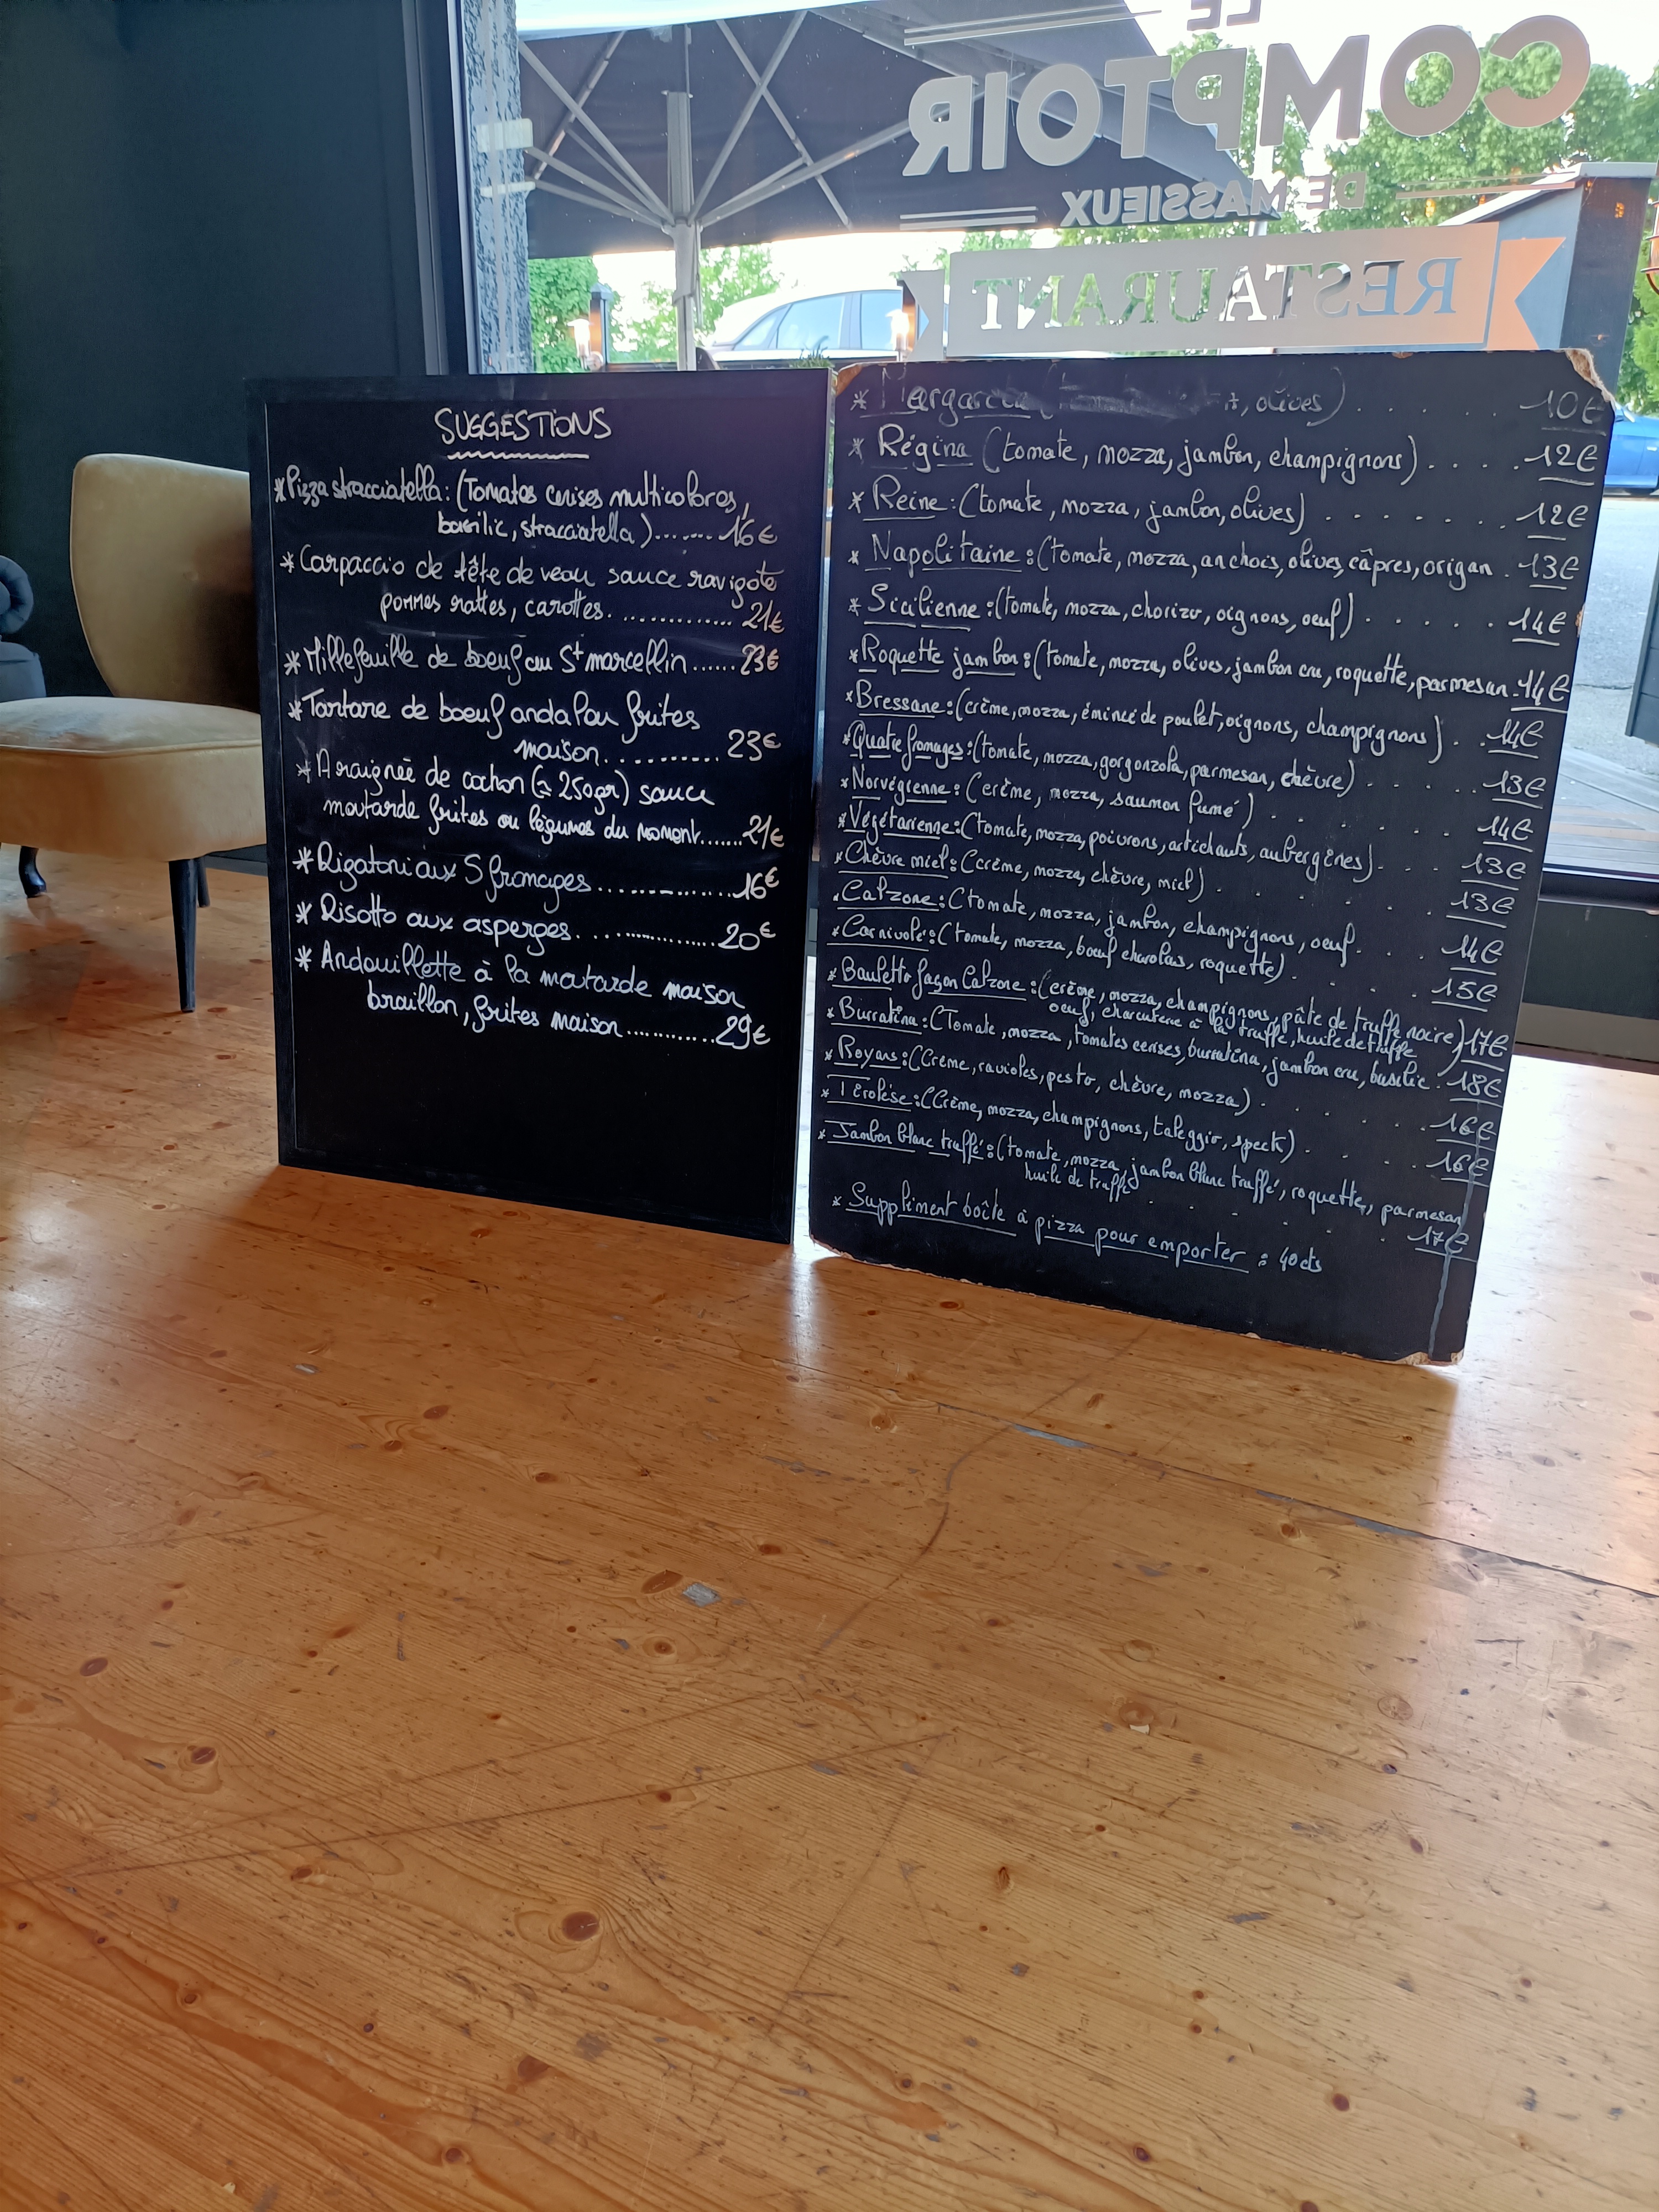 LE
COMPTOIR
DE MASSIEUX
RESTAURANT
SUGGESTIONS
* Pizza stracciatella : (Tomates cerises multicolores,
basilic, stracciatella)....... 16€
* Carpaccio de tête de veau sauce ravigote
pommes rattes, carottes............... 21€
* Millefeuille de boeuf au St marcellin...... 23€
* Tartare de boeuf andalou frites
maison........... 23€
* Araignée de cochon (≃ 250gr) sauce
moutarde frites ou légumes du moment....... 21€
* Rigatoni aux 5 fromages............... 16€
* Risotto aux asperges............... 20€
* Andouillette à la moutarde maison
braillon, frites maison............ 29€
* Margarita ( , olives) . . . . . 10€
* Régina (tomate, mozza, jambon, champignons) . . . . 12€
* Reine : (tomate, mozza, jambon, olives) . . . . . . . 12€
* Napolitaine : (tomate, mozza, anchois, olives, câpres, origan . 13€
* Sicilienne : (tomate, mozza, chorizo, oignons, oeuf) . . . . . . 14€
* Roquette jambon : (tomate, mozza, olives, jambon cru, roquette, parmesan . 14€
* Bressane : (crème, mozza, émincé de poulet, oignons, champignons) . . 14€
* Quatre fromages : (tomate, mozza, gorgonzola, parmesan, chèvre) . . . . 13€
* Norvégienne : (crème, mozza, saumon fumé) . . . . . . 14€
* Végétarienne : (tomate, mozza, poivrons, artichauts, aubergines) . . . 13€
* Chèvre miel : (crème, mozza, chèvre, miel) . . . . . . 13€
* Calzone : (tomate, mozza, jambon, champignons, oeuf . . . . 14€
* Carnivole : (tomate, mozza, boeuf charolais, roquette) . . . . 15€
* Bauletto façon Calzone : (crème, mozza, champignons, pâte de truffe noire) 17€
oeuf, charcuterie à la truffe, huile de truffe
* Burratina : (Tomate, mozza, tomates cerises, burratina, jambon cru, basilic . 18€
* Royans : (Crème, ravioles, pesto, chèvre, mozza) . . . . . 16€
* Tirolèse : (Crème, mozza, champignons, taleggio, speck) . . . . 16€
* Jambon blanc truffé : (tomate, mozza, jambon blanc truffé, roquette, parmesan
huile de truffe . . . . . . . 17€
* Supplément boîte à pizza pour emporter : 40cts